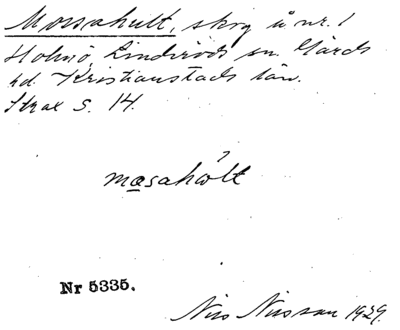 Mossahult, skog å nr. 1
Holmö, Linderöds sn. Gärds
hd. Kristianstads län.
Strax S. 14.
mosahult
Nr 5335.
Nils Nilsson 1929.